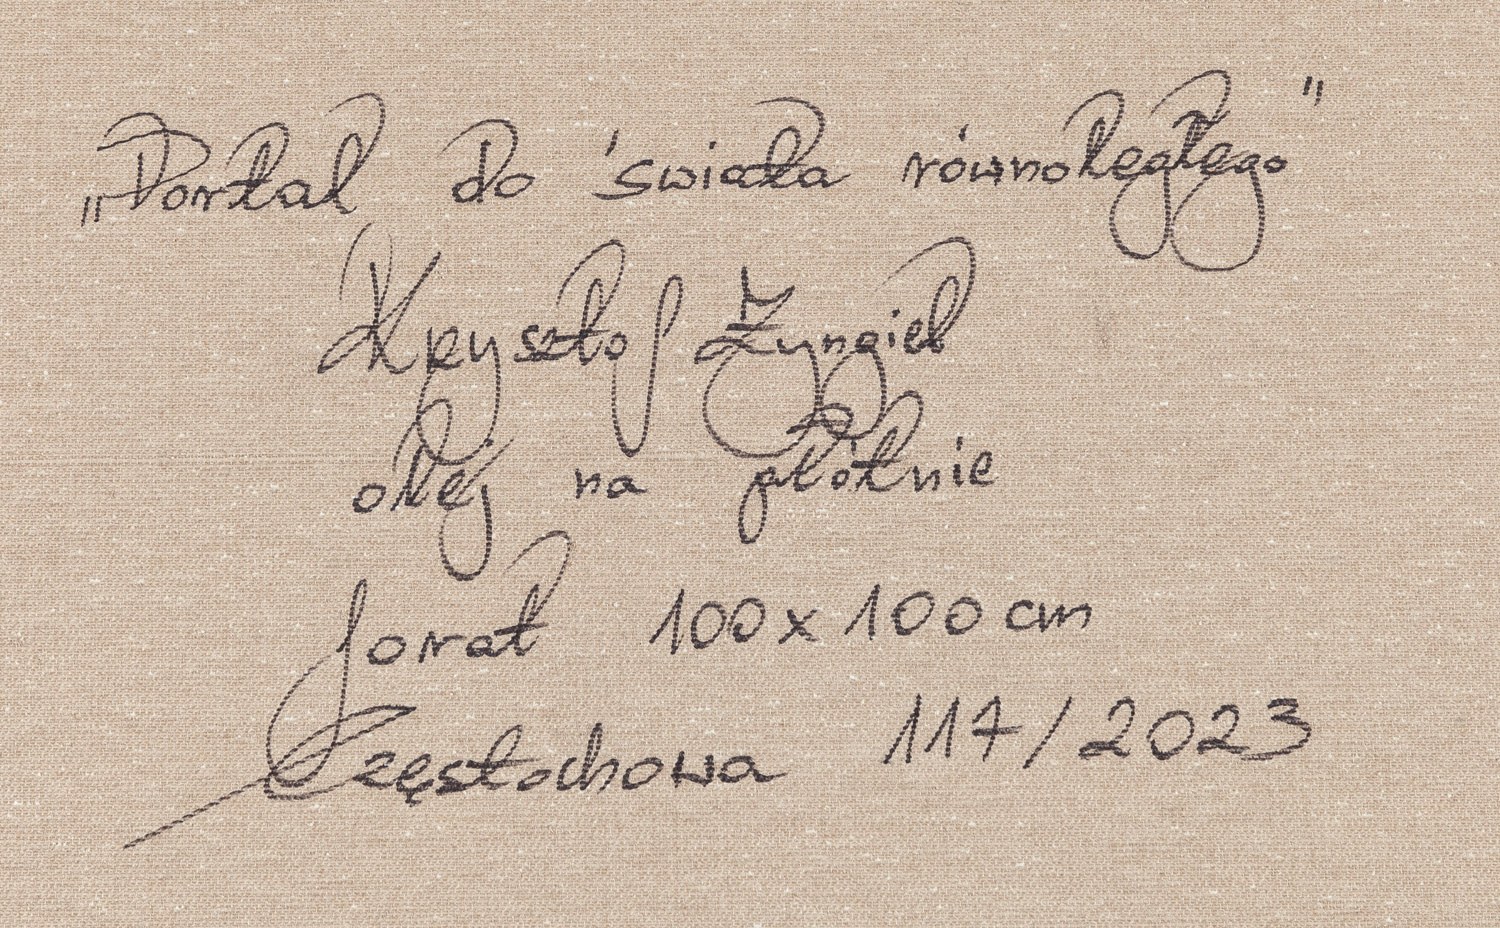 „Portal do świata równoległego"
Krzysztof Żyngiel
olej na płótnie
format 100x100 cm
Częstochowa 117/2023